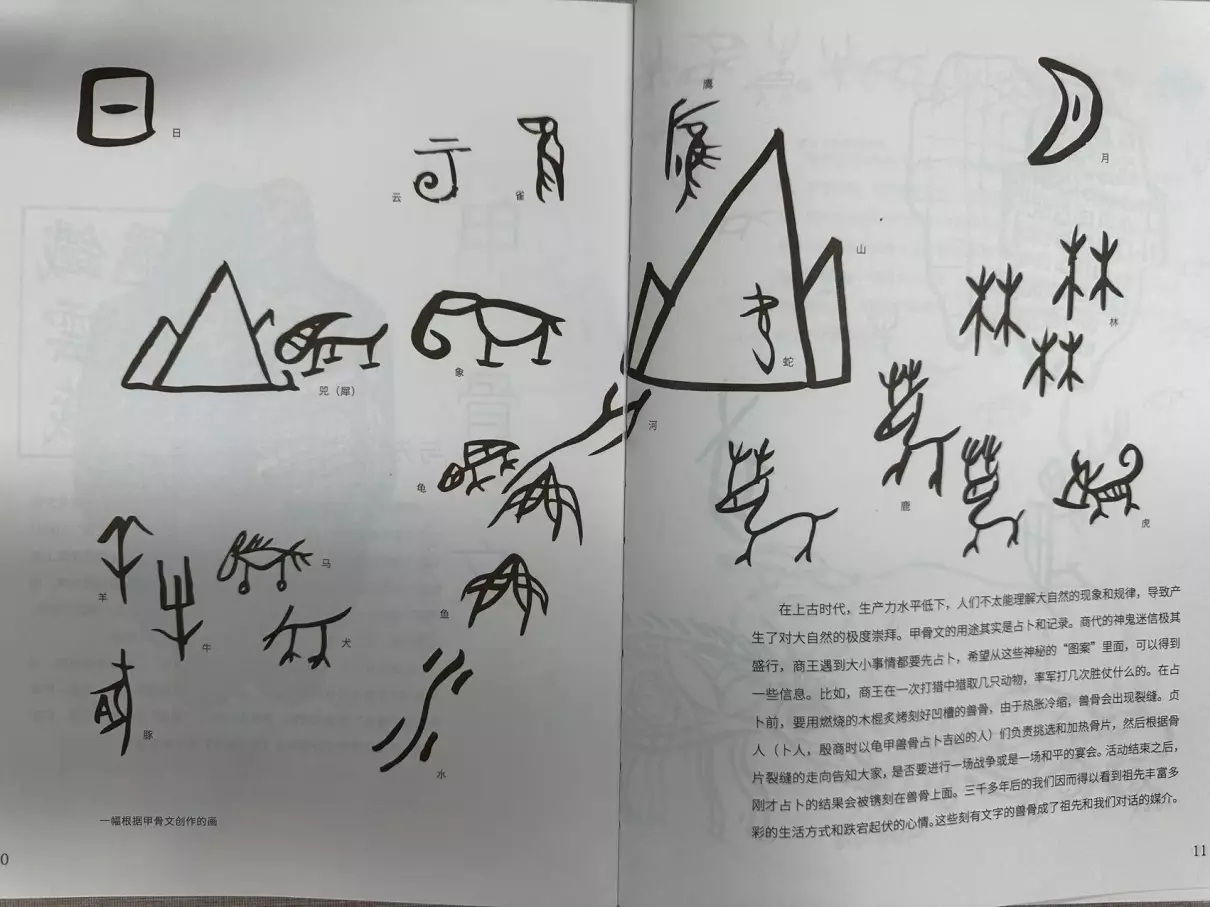 日
云
雀
兕（犀）
象
龟
羊
牛
马
犬
鱼
豚
水
一幅根据甲骨文创作的画
0
鹰
月
山
蛇
林
河
鹿
虎
在上古时代，生产力水平低下，人们不太能理解大自然的现象和规律，导致产
生了对大自然的极度崇拜。甲骨文的用途其实是占卜和记录。商代的神鬼迷信极其
盛行，商王遇到大小事情都要先占卜，希望从这些神秘的“图案”里面，可以得到
一些信息。比如，商王在一次打猎中猎取几只动物，率军打几次胜仗什么的。在占
卜前，要用燃烧的木棍炙烤刻好凹槽的兽骨，由于热胀冷缩，兽骨会出现裂缝。贞
人（卜人，殷商时以龟甲兽骨占卜吉凶的人）们负责挑选和加热骨片，然后根据骨
片裂缝的走向告知大家，是否要进行一场战争或是一场和平的宴会。活动结束之后，
刚才占卜的结果会被镌刻在兽骨上面。三千多年后的我们因而得以看到祖先丰富多
彩的生活方式和跌宕起伏的心情。这些刻有文字的兽骨成了祖先和我们对话的媒介。
11